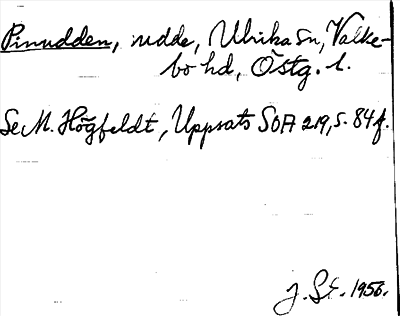 Pinudden, udde, Ulrika sn, Valke-
bo hd, Östg. l.
Se M. Högfeldt, Uppsats SOA 219, s. 84 f.
J. St. 1956.